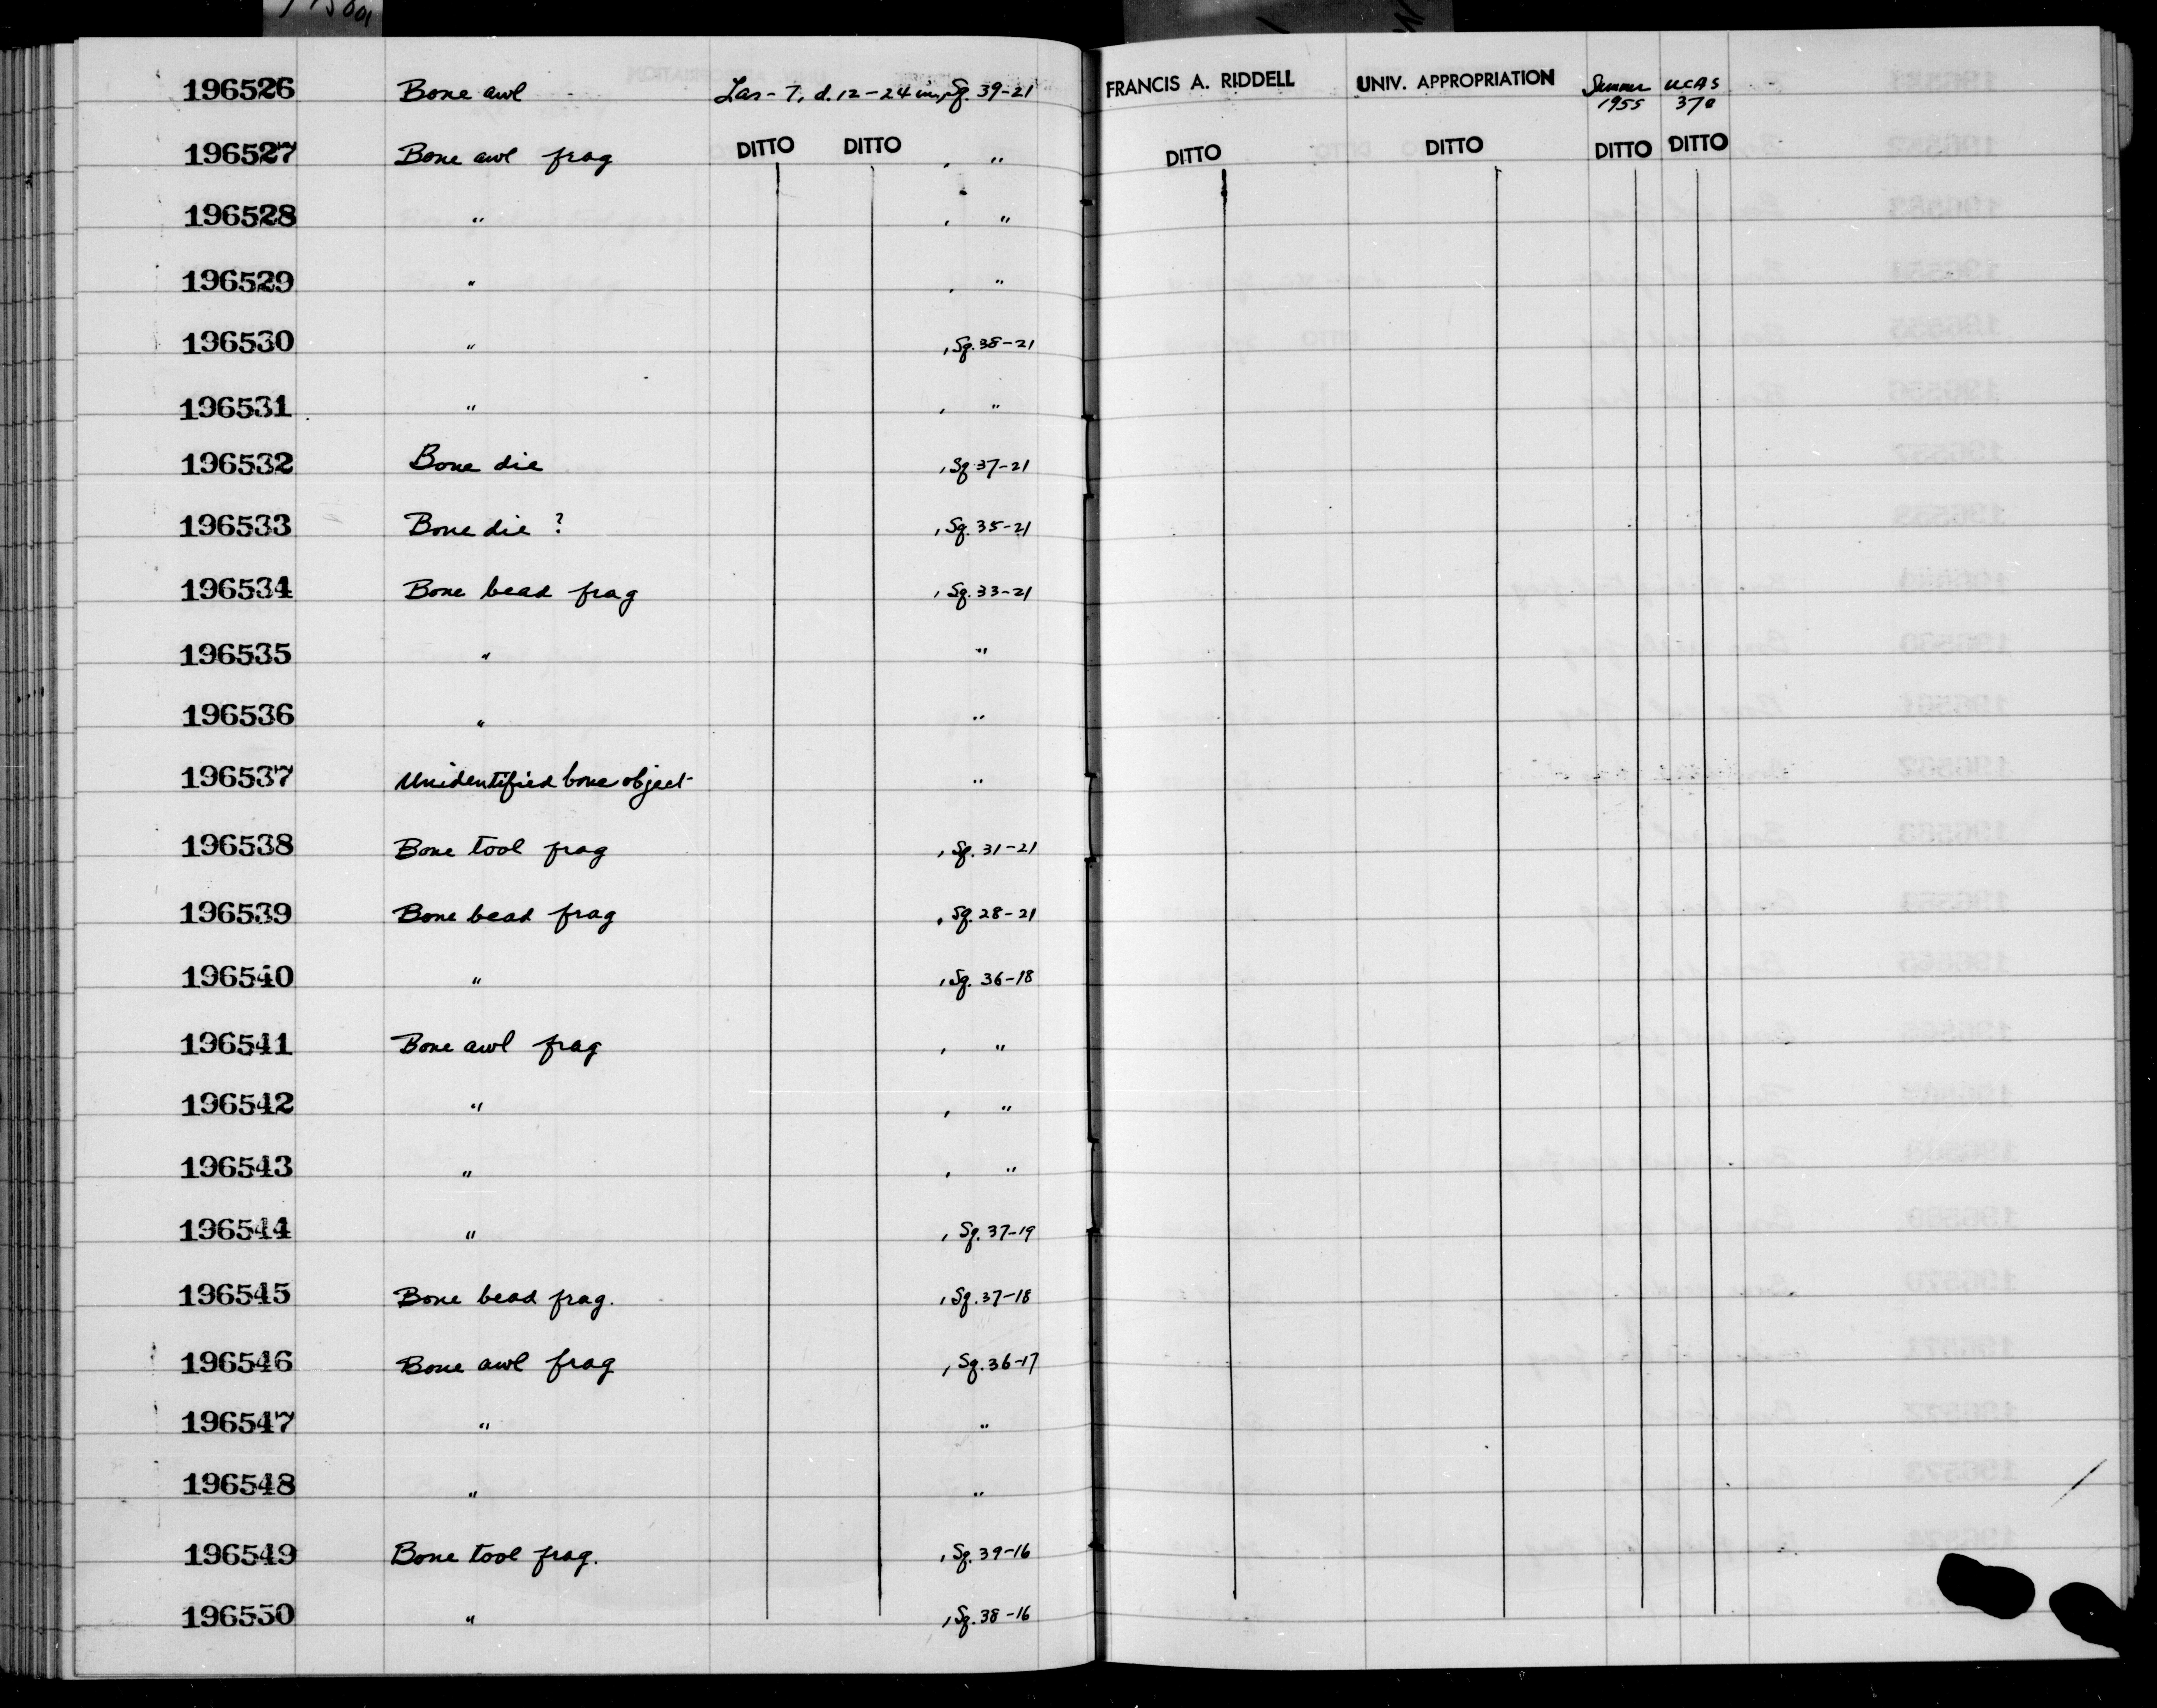 196526 Bone awl Las-7, d. 12-24 in, Sq. 39-21 FRANCIS A. RIDDELL UNIV. APPROPRIATION Summer 1955 UCAS 370
196527 Bone awl frag DITTO DITTO , " DITTO DITTO DITTO DITTO
196528 " , "
196529 " , "
196530 " , Sq. 38-21
196531 " , "
196532 Bone die , Sq. 37-21
196533 Bone die ? , Sq. 35-21
196534 Bone bead frag , Sq. 33-21
196535 " "
196536 " "
196537 Unidentified bone object "
196538 Bone tool frag , Sq. 31-21
196539 Bone bead frag , Sq. 28-21
196540 " , Sq. 36-18
196541 Bone awl frag , "
196542 " , "
196543 " , "
196544 " , Sq. 37-19
196545 Bone bead frag. , Sq. 37-18
196546 Bone awl frag , Sq. 36-17
196547 " "
196548 " "
196549 Bone tool frag. , Sq. 39-16
196550 " , Sq. 38-16